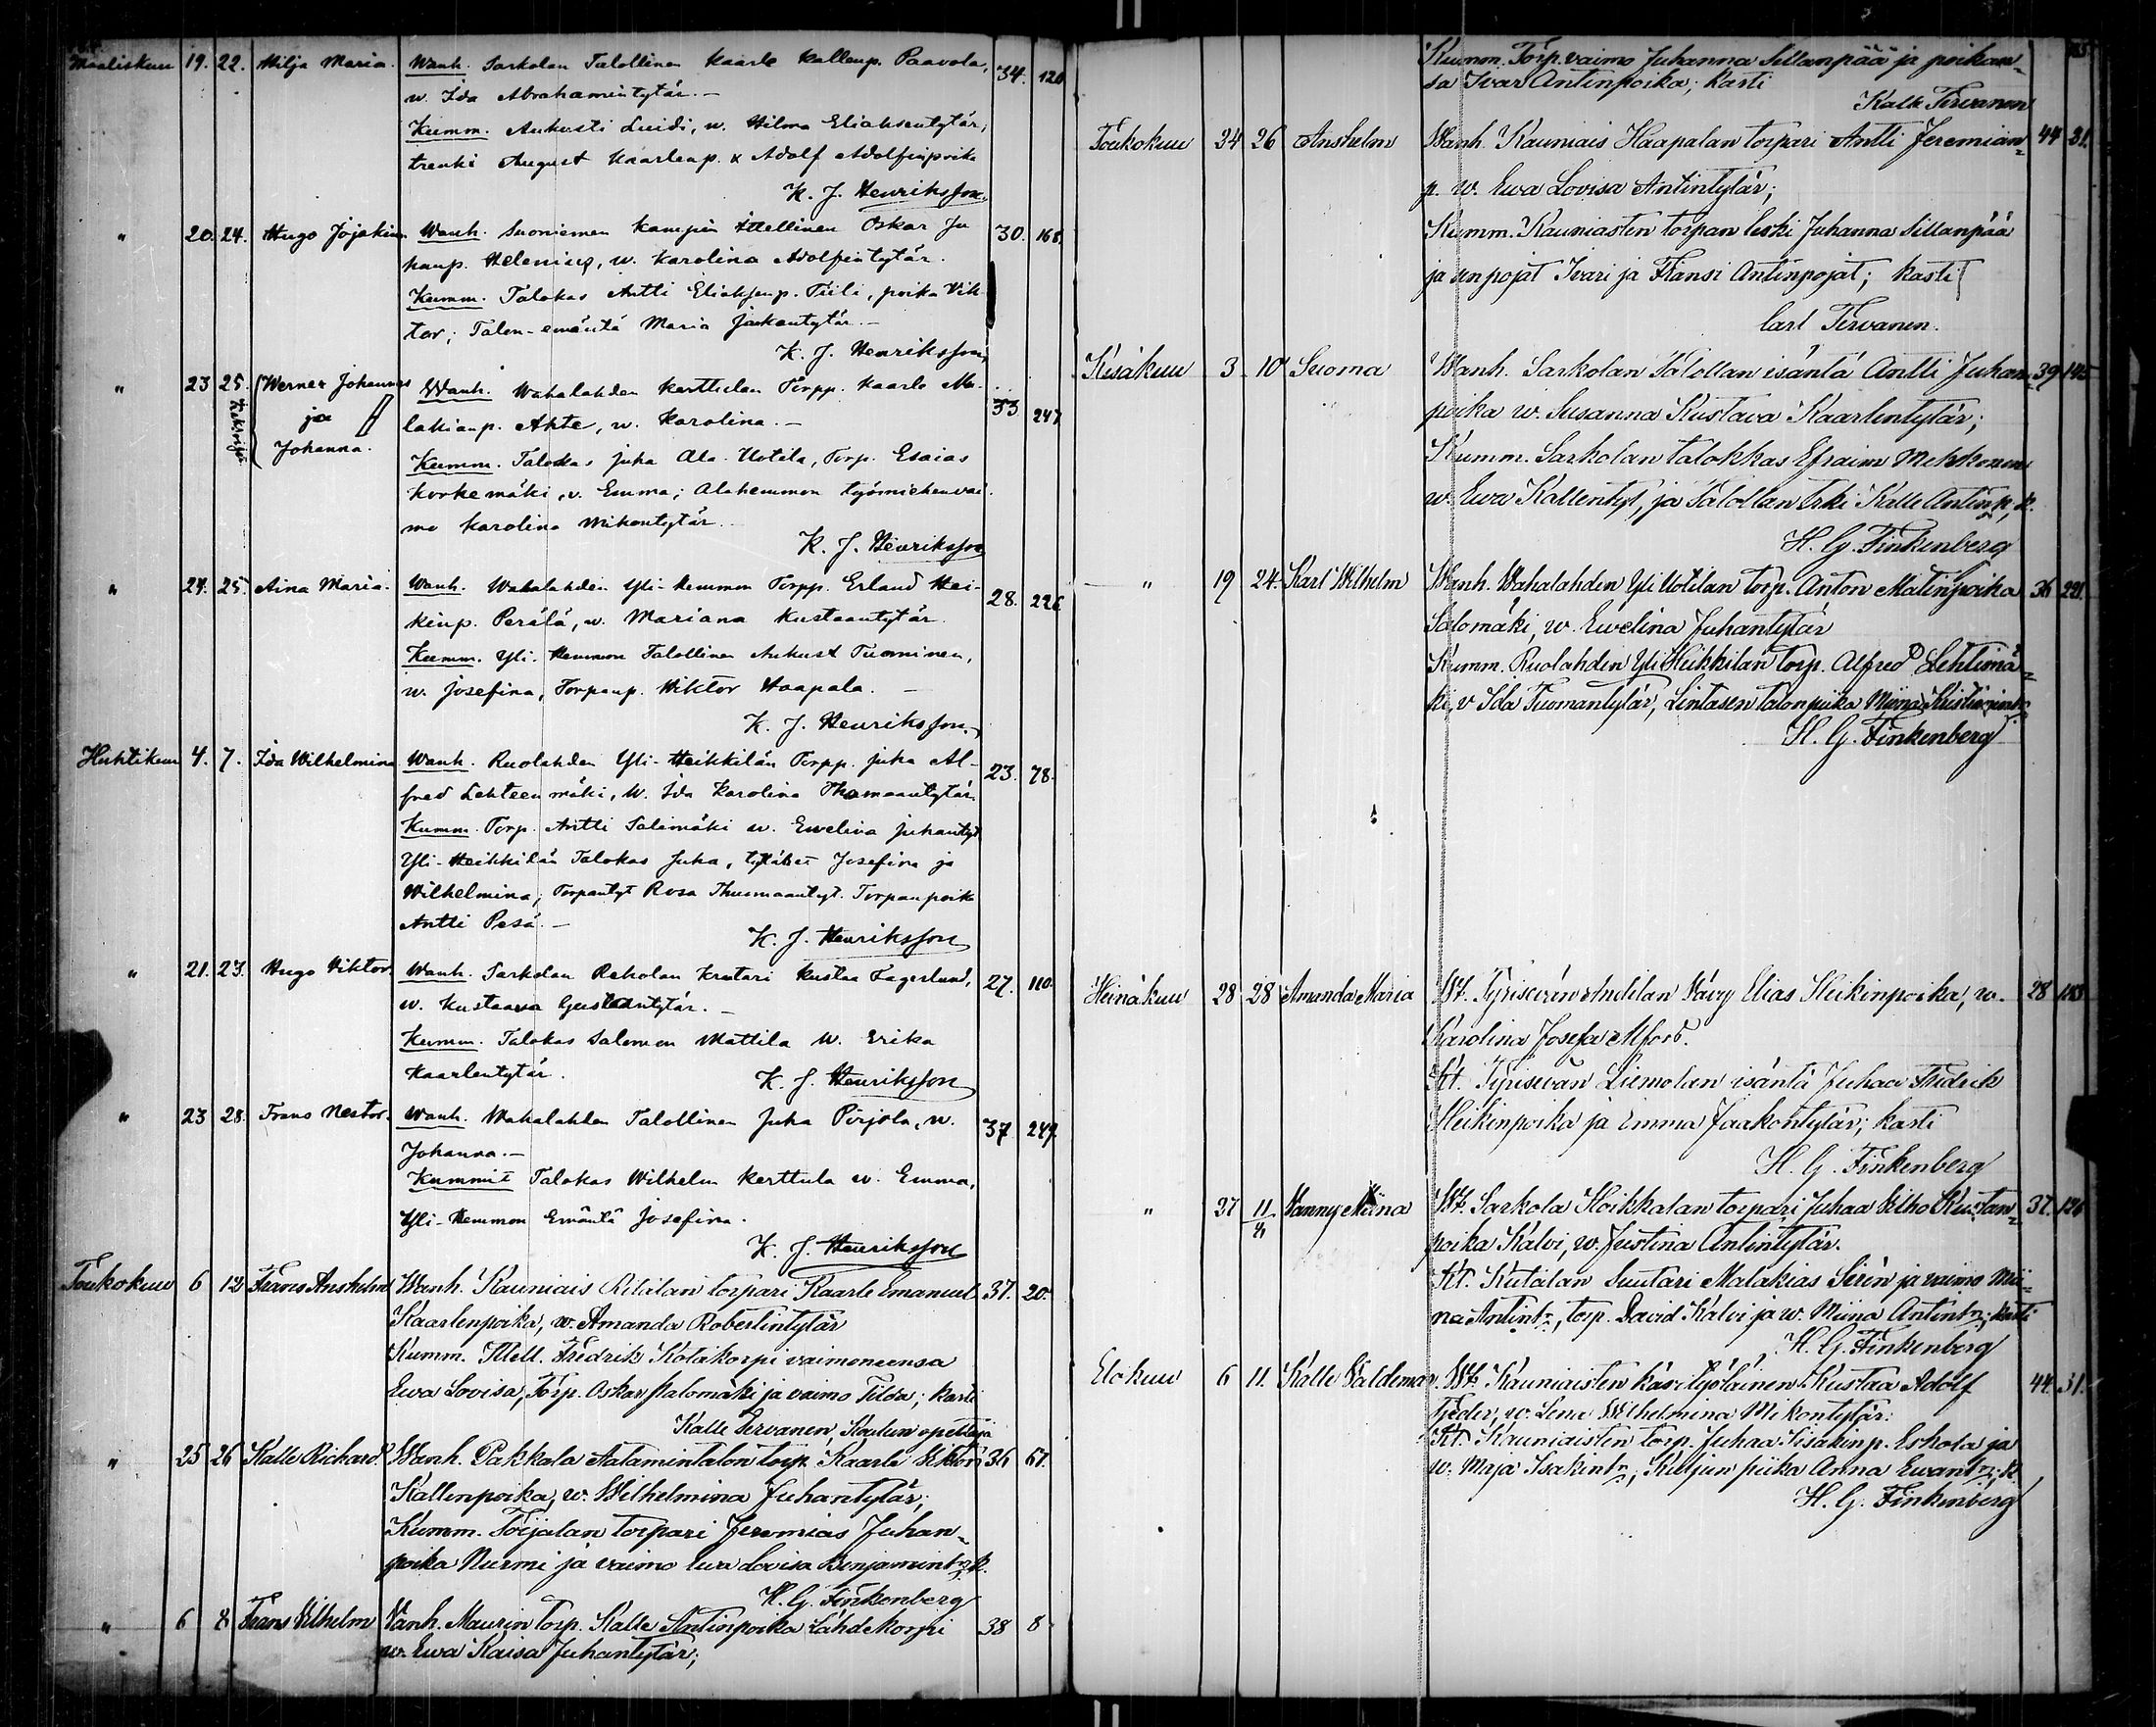 Maaliskuu 19. 22. Hilja Maria. Wanh. Sarkolan Talollinen Kaarle Kallenp. Paavola, 34. 120
w. Ida Abrahamintytär. —
Kumm. Aukusti Luidi, w. Hilma Eliaksentytär,
trenki August Kaarlenp. & Adolf Adolfinpoika
K. J. Henriksson.
" 20. 24. Hugo Jojakim Wanh. Suoniemen Kampin Itellinen Oskar Ju 30. 168.
hanp. Helenius, w. Karolina Adolfintytär.
Kumm. Talokas Antti Eliaksenp. Tiili, poika Vik-
tor; Talon-emäntä Maria Jaakontytär. —
K. J. Henriksson,
" 23 25. Werner Johannes Wanh. Wahalahden Kerttulan Torpp. Kaarlo Ma- 33 247
ja lakianp. Ahte, w. Karolina. —
Johanna. Kumm. Talokas Juha Ala-Uotila, Torp. Esaias
Korkemäki, v. Emma; Alahemmon työmiehenvai-
mo Karolina Mikontytär.
K. J. Henriksson
" 24. 25. Aina Maria. Wanh. Wahalahden Yli-Hemmon Torpp. Erland Hei- 28. 226
kinp. Perälä, w. Mariana Kustaantytär.
Kumm. Yli-Hemmon Talollinen Aukust Tuominen,
w. Josefina, Torpanp. Wiktor Haapala. —
K. J. Henriksson.
Huhtikuu 4. 7. Ida Wilhelmina Wanh. Ruolahden Yli-Heikkilän Torpp. Juha Al- 23. 78.
fred Lehteenmäki, W. Ida Karolina Thomaantytär.
Kumm. Torp. Antti Salimäki w. Ewelina Juhantyt
Yli-Heikkilän Talokas Juha, tyttäret Josefina ja
Wilhelmina; Torpantyt Rosa Thuomaantyt. Torpanpoika
Antti Pesä. —
K. J. Henriksson
" 21. 23. Hugo Viktor. Wanh. Sarkolan Reholan Kratari Kustaa Fagerlund, 27. 110.
w. Kustaava Gustaantytär. —
Kumm. Talokas Salomon Mattila W. Erika
Kaarlentytär.
K. J. Henriksson
" 23 28. Frans Nestor. Wanh. Wahalahden Talollinen Juha Pirjola, w. 37 249.
Johanna. —
Kummit Talokas Wilhelm Kerttula w. Emma,
Yli-Hemmon Emäntä Josefina.
K. J. Henriksson
Toukokuu 6 12 Frans Anshelm Wanh. Kauniais Ritalan torpari Kaarle Emanuel 37. 20.
Kaarlenpoika, w. Amanda Robertintytär
Kumm. Itell. Fredrik Kotakorpi vaimoneensa
Ewa Lovisa, Torp. Oskar Salomäki ja vaimo Tilda; kasti
Kalle Tervanen, Koulun opettaja
" 25 26 Kalle Richard Wanh. Pakkala Aatamintalon torp. Kaarle Viktori 36 61.
Kallenpoika, w. Wilhelmina Juhantytär;
Kumm. Torjalan torpari Jeremias Juhan-
poika Nurmi ja vaimo Ewa Lovisa Benjamint:r; k.
H. G. Finkenberg
" 6 8 Frans Vilhelm Vanh. Maurin torp. Kalle Antinpoika Lähdekorpi 38 8
w. Ewa Kaisa Juhantytär;
Kumm. Torp. vaimo Juhanna Sillanpää ja poikan-
sa Ivar Antinpoika; kasti
Kalle Tervanen
Toukokuu 24 26 Anshelm Wanh. Kauniais Haapalan torpari Antti Jeremian- 44 31.
p. w. Ewa Lovisa Antintytär;
Kumm. Kauniasten torpan leski Juhanna Sillanpää
ja sen pojat Ivari ja Fransi Antinpojat; kasti
Carl Tervanen.
Kesäkuu 3 10 Suoma Wanh. Sarkolan Talollan isäntä Antti Juhan- 39 145
poika w. Susanna Kustava Kaarlentytär;
Kumm. Sarkolan talokkas Efraim Mehkonen
w. Ewa Kallentyt, ja Talollan Erki Kalle Antinp, k.
H. G. Finkenberg
" 19 24 Karl Wilhelm Wanh. Wahalahden Yli Uotilan torp. Anton Matinpoika 36 221.
Salomäki, w. Ewelina Juhantytär
Kumm. Ruolahden Yli Heikkilän torp. Alfred Lehtimä-
ki, v Ida Tuomantytär, Lintasen talonpoika
H. G. Finkenberg
Heinäkuu 28 28 Amanda Maria Wt. Tyriseván Anttilan Elias Heikinpoika, w. 28
Karolina Josefa Alfort.
Kt. Tyrisevän Liemolan isäntä Juhaa Fredrik
Heikinpoika ja Emma Jaakontytär; kasti
H. G. Finkenberg
" 27 11/8 Vanny Miina Wt. Sarkola Hoikkalan torpari Juhaa Vilho Kustan- 37. 126
poika Kalvi, w. Justina Antintytär.
Kt. Kutalan Suutari Malakias Sirén ja vaimo Mii-
na Antint:r, torp. David Kalvi ja w. Miina Antint:r; kasti
H. G. Finkenberg
Elokuu 6 11. Kalle Valdemar. Wt. Kauniaisten käsityöläinen Kustaa Adolf 44. 31.
Tjeder, w. Lena Wilhelmina Mikontytär.
Kt. Kauniaisten torp. Juhaa Iisakinp. Eskola ja
w. Maja Isakint:r, Kuljun piika Anna Ewant:r; k
H. G. Finkenberg